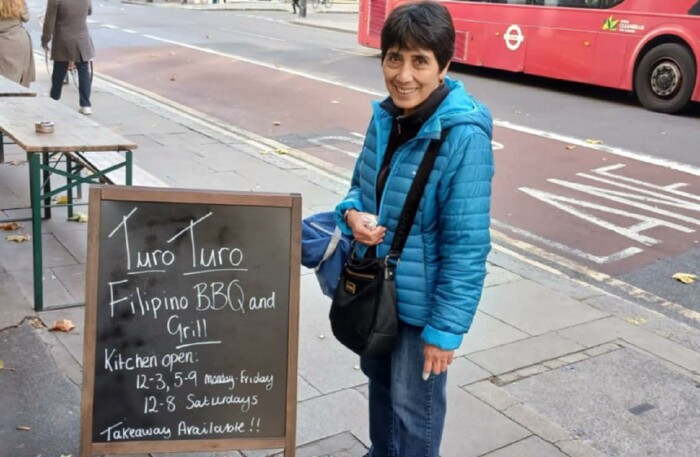 Turo Turo
Filipino BBQ and
Grill
Kitchen open:
12-3, 5-9 Monday-Friday
12-8 Saturdays
Takeaway Available !!
LANE